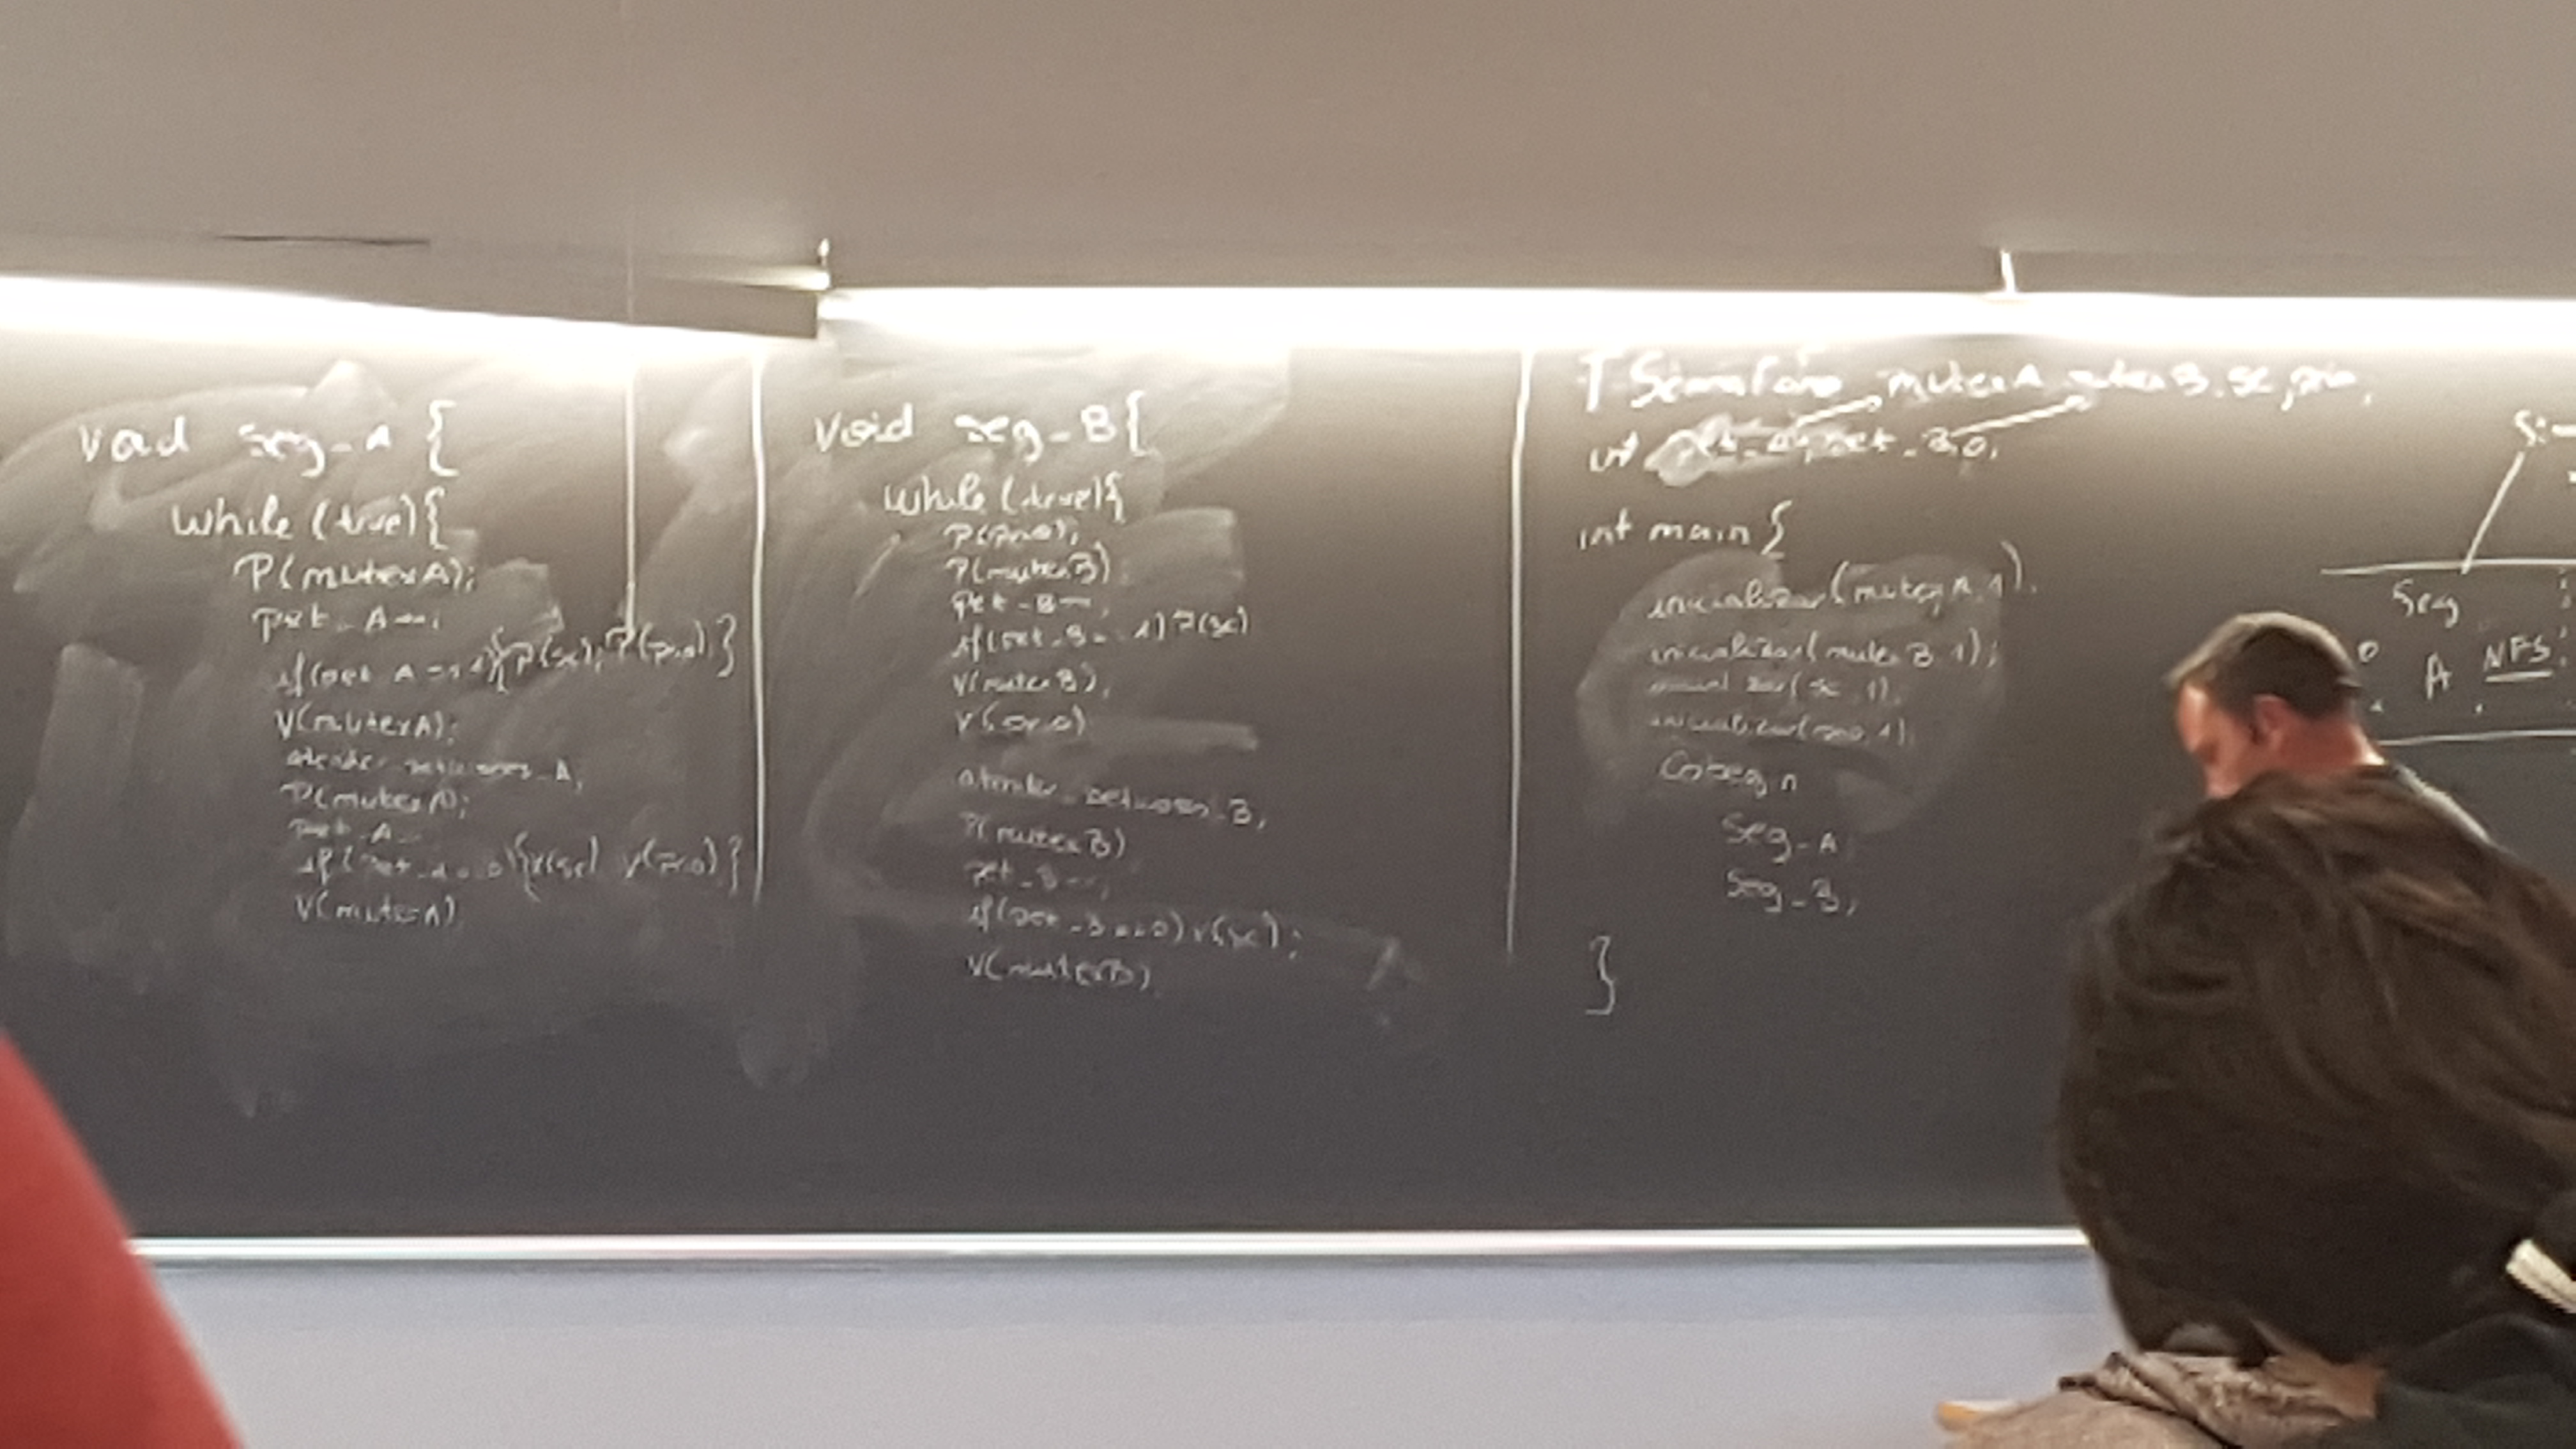 void seg_A {
while (true) {
P(mutexA);
pet_A++;
if(pet_A==1){P(sc); P(prio);}
V(mutexA);
atender_peticiones_A;
P(mutexA);
pet_A--;
if(pet_A==0){V(sc) V(prio)}
V(mutexA)
void seg_B{
while (true){
P(prio);
P(mutexB);
pet_B++;
if(pet_B==1) P(sc)
V(mutexB);
V(prio)
atender_peticiones_B;
P(mutexB)
pet_B--;
if(pet_B==0) V(sc);
V(mutexB)
TSemaforo mutexA mutexB, sc, prio;
int pet_A, pet_B
int main {
inicializar(mutexA,1);
inicializar(mutexB,1);
inicializar(sc,1);
inicializar(prio,1);
Cobegin
Seg_A;
Seg_B;
}
Seg
A NFS